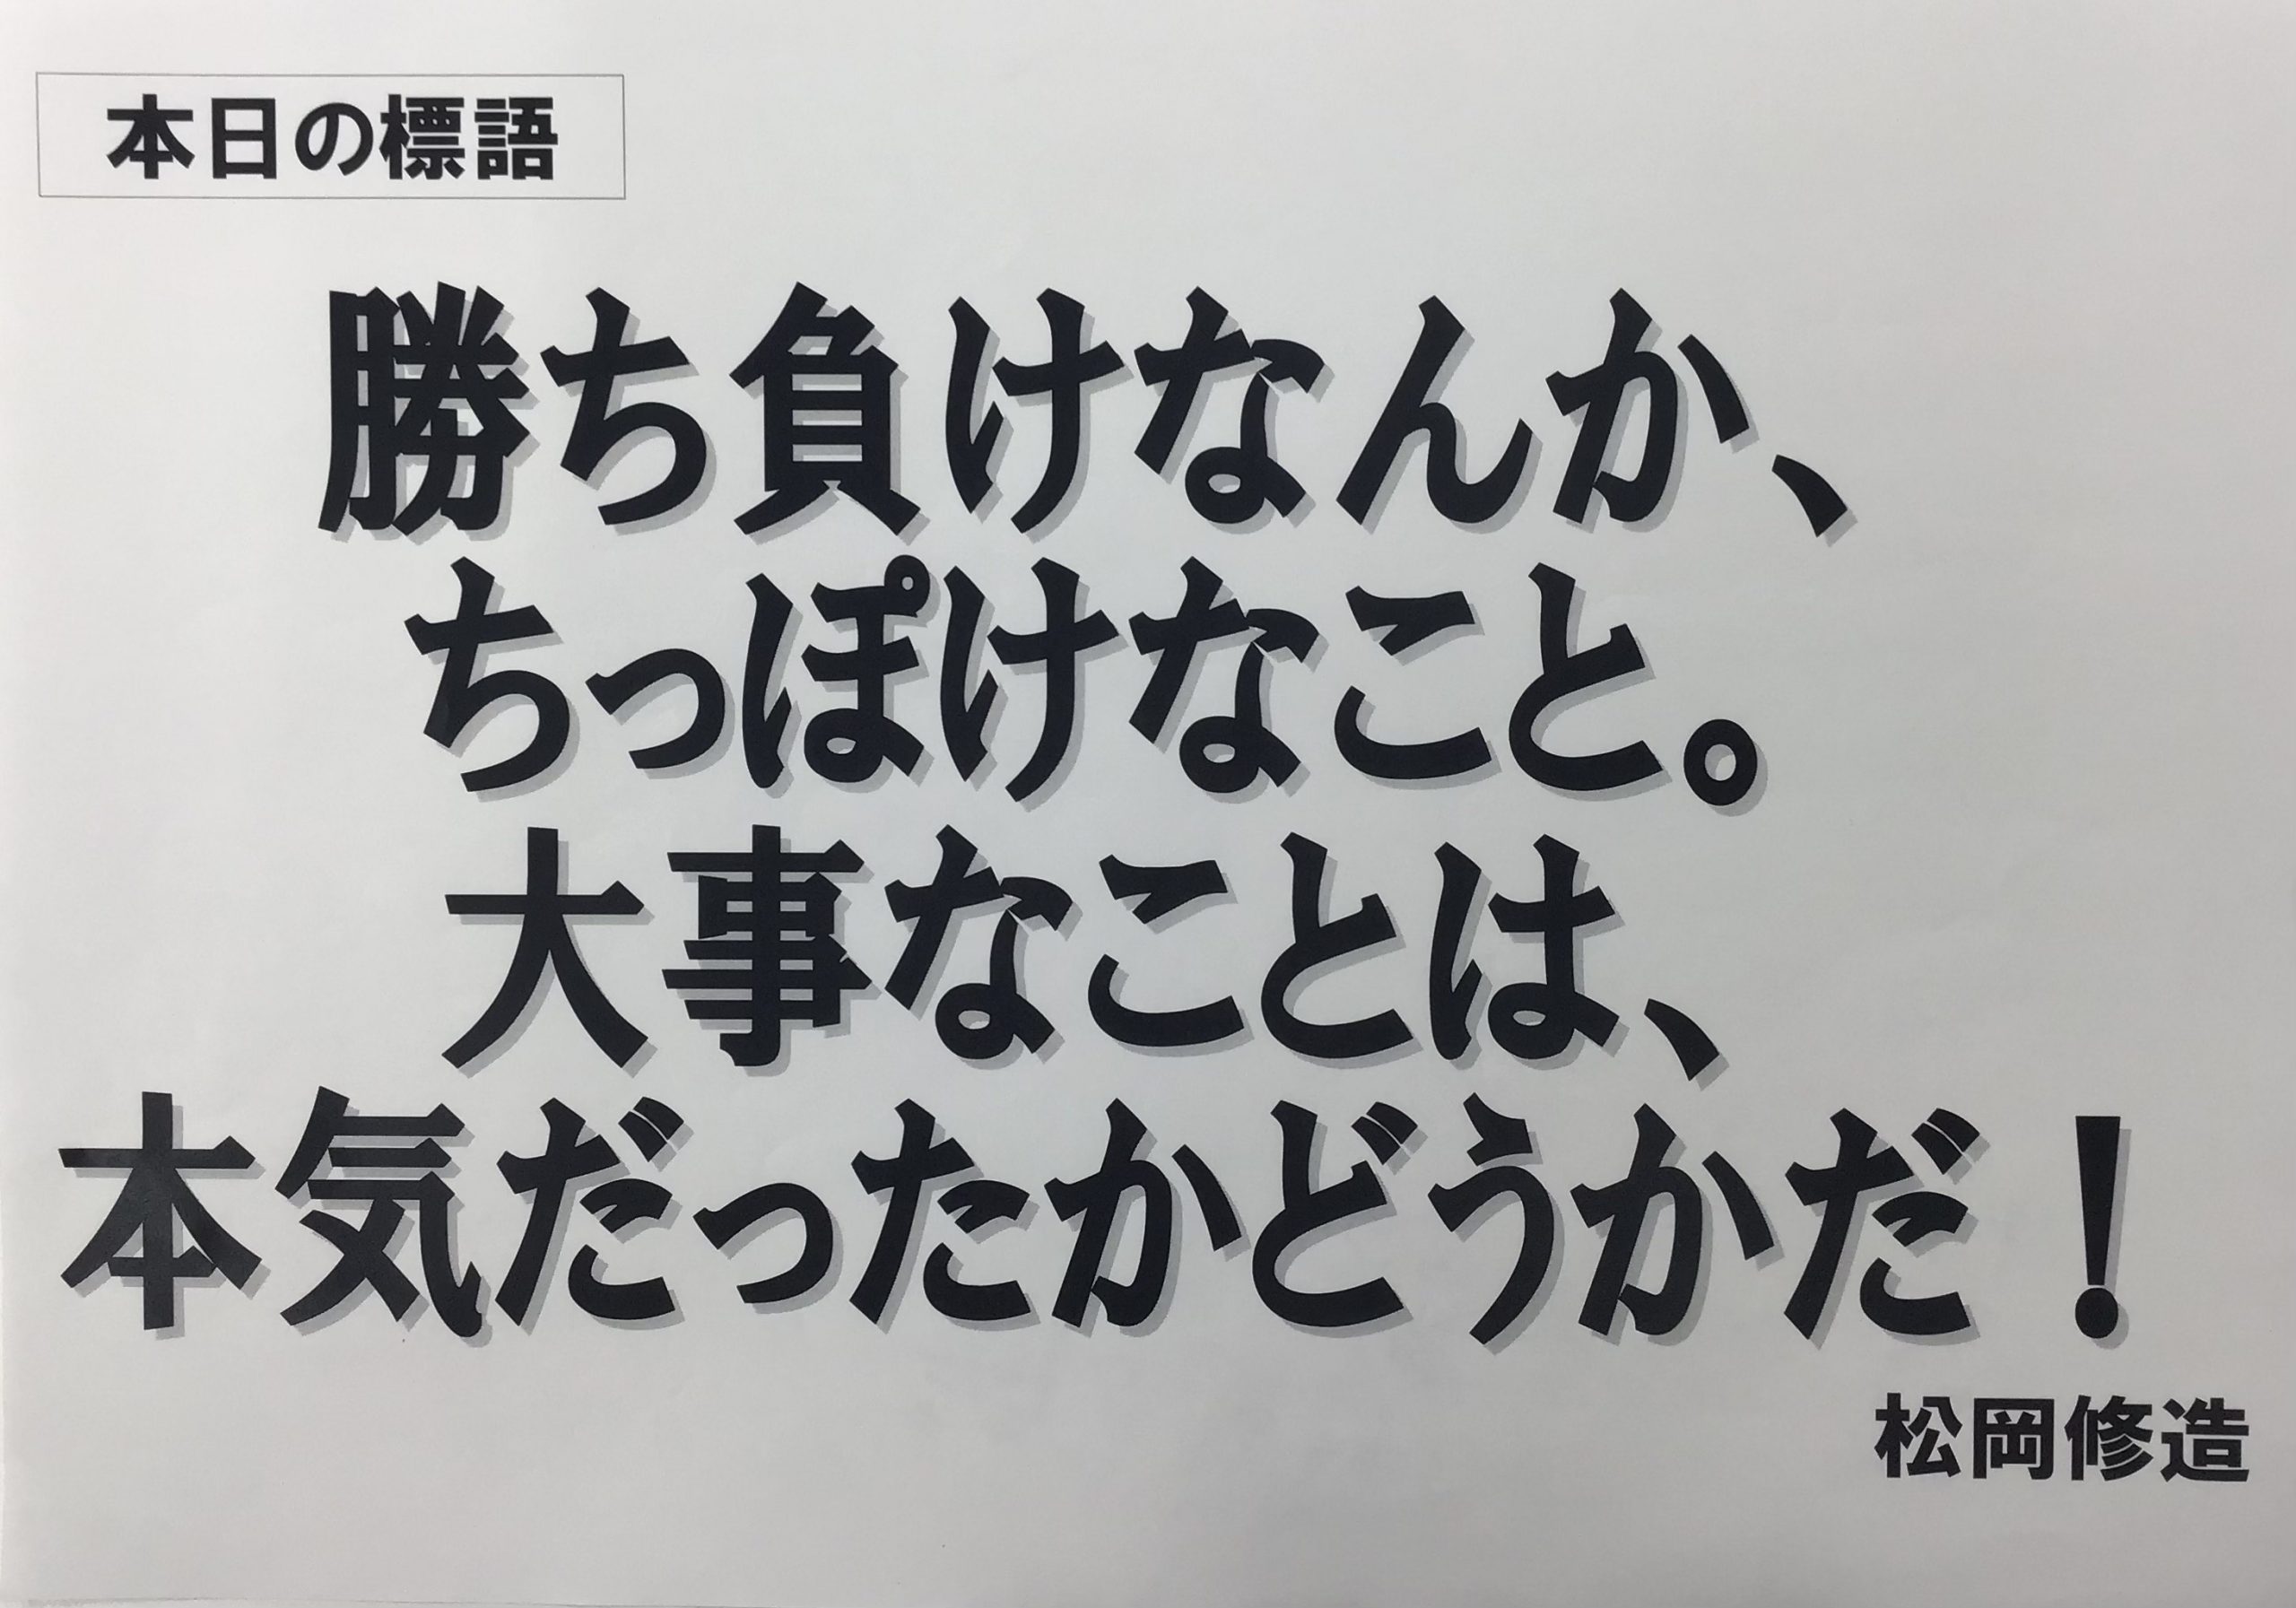 本日の標語
勝ち負けなんか、
ちっぽけなこと。
大事なことは、
本気だったかどうかだ！
松岡修造